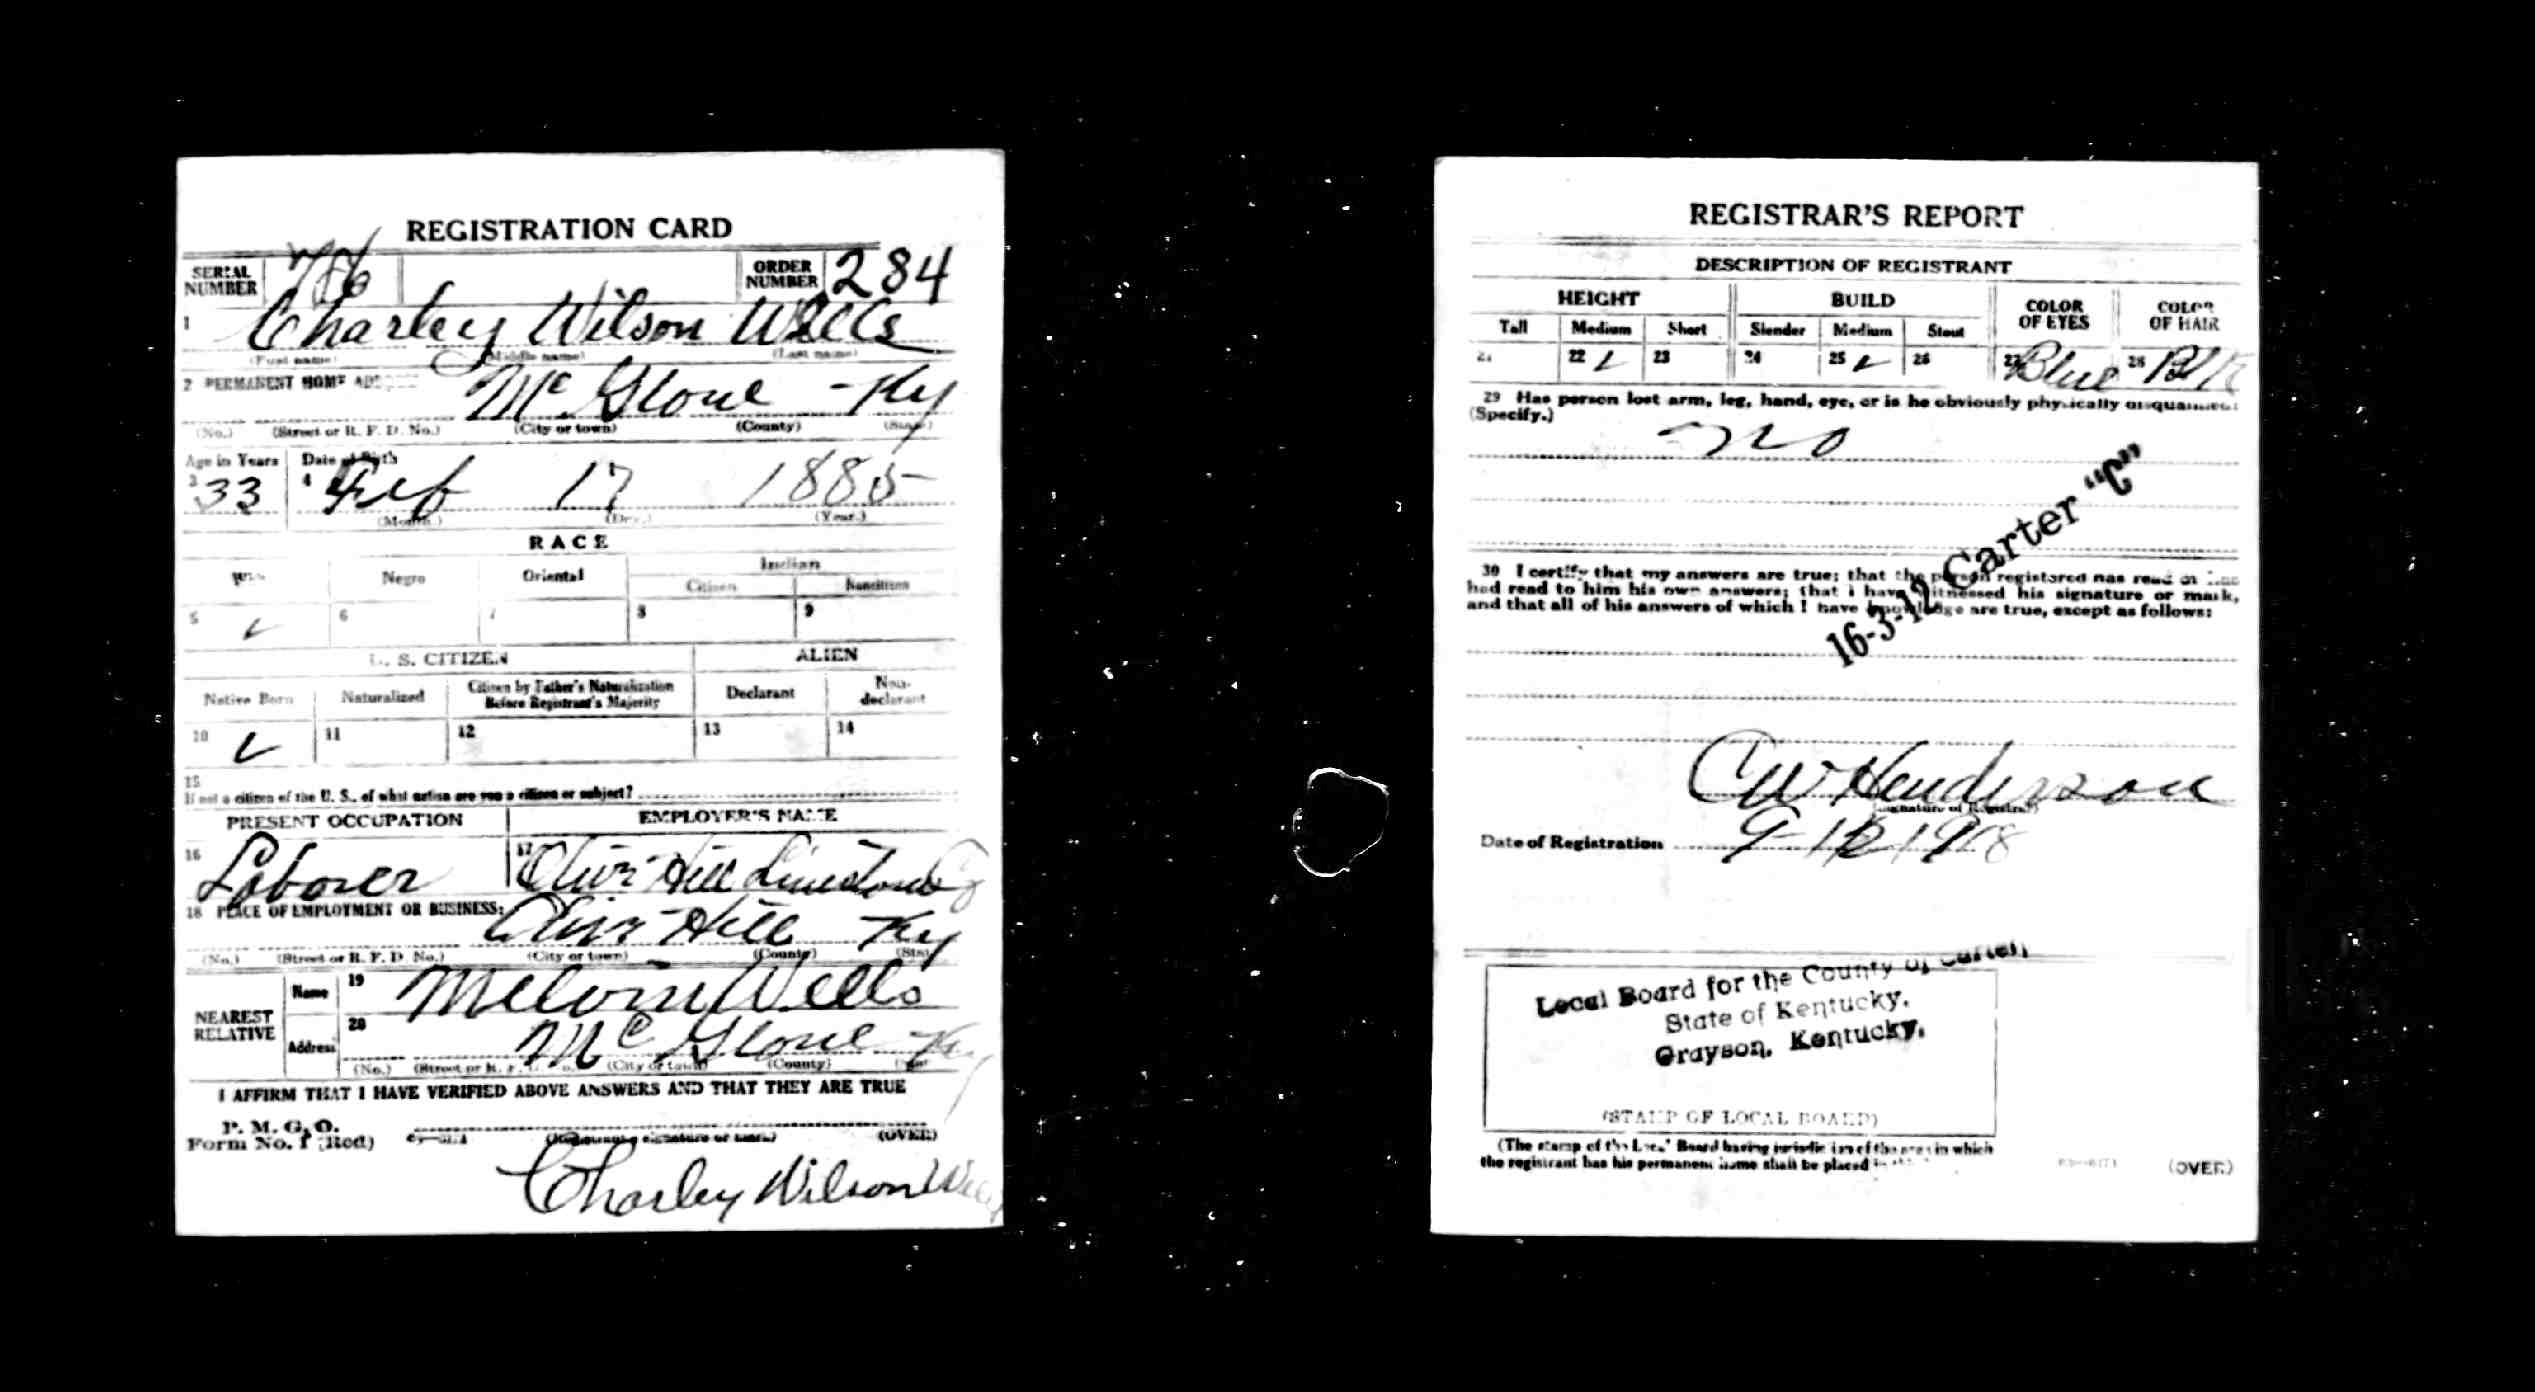 REGISTRATION CARD
SERIAL NUMBER
ORDER NUMBER 284
1 Charley Wilson Wells
(First name) (Middle name) (Last name)
2 PERMANENT HOME
McGlone Ky
(No.) (Street or R. F. D. No.) (City or town) (County) (State)
Age in Years Date of Birth
3 33 4 Feb 17 1885
(Month.) (Day.) (Year.)
RACE
Negro Oriental Indian
Citizen Noncitizen
5 ✓ 6 7 8 9
U. S. CITIZEN ALIEN
Native Born Naturalized Citizen by Father's Naturalization Before Registrant's Majority Declarant Non-declarant
10 ✓ 11 12 13 14
15
If not a citizen of the U. S., of what nation are you a citizen or subject?
PRESENT OCCUPATION EMPLOYER'S NAME
16 Laborer 17 Olive Hill Limestone Co
18 PLACE OF EMPLOYMENT OR BUSINESS:
Olive Hill Ky
(No.) (Street or R. F. D. No.) (City or town) (County) (State)
NEAREST RELATIVE
Name 19 Melvin Wells
Address 20 McGlone Ky
(No.) (City or town) (County)
I AFFIRM THAT I HAVE VERIFIED ABOVE ANSWERS AND THAT THEY ARE TRUE
P. M. G. O.
Form No. 1 (Red) (Registrant's signature or mark) (OVER)
Charley Wilson Wells
REGISTRAR'S REPORT
DESCRIPTION OF REGISTRANT
HEIGHT BUILD COLOR OF EYES COLOR OF HAIR
Tall Medium Short Slender Medium Stout
21 22 ✓ 23 24 25 ✓ 26 27 Blue 28 Blk
29 Has person lost arm, leg, hand, eye, or is he obviously physically disqualified?
(Specify.)
no
30 I certify that my answers are true; that the person registered has read or has
had read to him his own answers; that I have witnessed his signature or mark,
and that all of his answers of which I have knowledge are true, except as follows:
16-3-12 Carter "C"
C W Henderson
(Signature of Registrar)
Date of Registration 9-12 1918
Local Board for the County of Carter,
State of Kentucky,
Grayson, Kentucky.
(STAMP OF LOCAL BOARD)
(The stamp of the Local Board having jurisdiction of the area in which
the registrant has his permanent home shall be placed
(OVER)